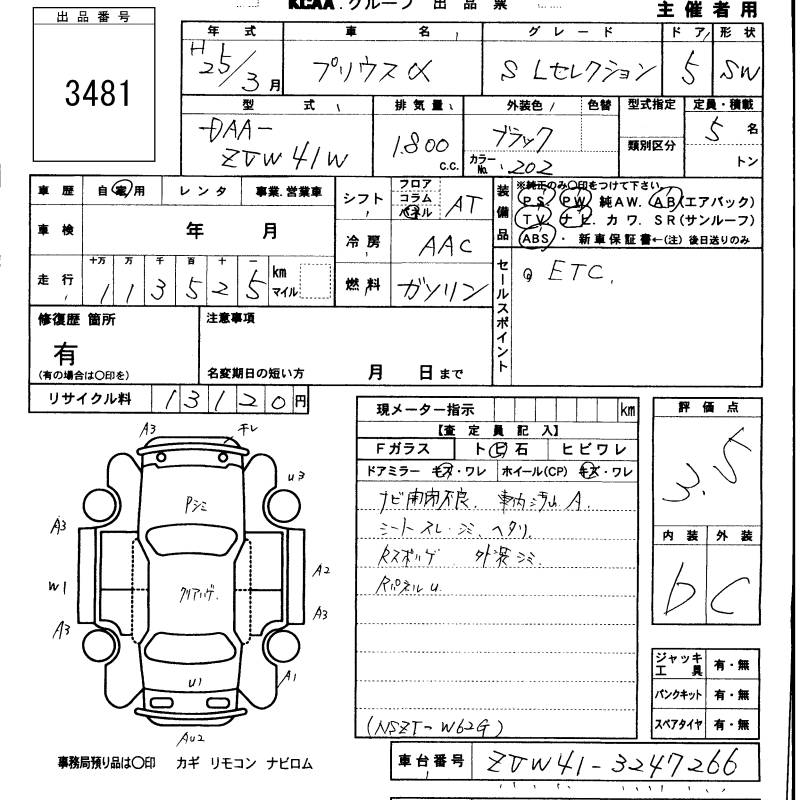 KCAA.グループ 出品票
主催者用
出品番号
3481
年式 車名 グレード ドア 形状
H25/3月 プリウスα S Lセレクション 5 SW
型式 排気量 外装色 色替 型式指定 定員・積載
DAA-
ZVW41W 1.800 c.c. ブラック 類別区分 5名
カラーNo. 202 トン
車歴 自家用 レンタ 事業.営業車
シフト フロア コラム パネル AT
装備品 ※純正のみ〇印をつけて下さい
PS. PW 純AW. AB(エアバック)
TV. ナビ. カワ. SR(サンルーフ)
ABS・新車保証書←(注)後日送りのみ
車検 年 月
冷房 AAC
走行 十万 万 千 百 十 一
113525 km マイル
燃料 ガソリン
セールスポイント ETC.
修復歴 箇所 注意事項
有
(有の場合は〇印を) 名変期日の短い方 月 日まで
リサイクル料 13120円
現メーター指示 km
【査定員記入】
Fガラス トビ石 ヒビワレ
ドアミラー キズ・ワレ ホイール(CP) キズ・ワレ
ナビ開閉不良. 車内汚れ A.
シートスレ・シミ、ヘタリ.
外装シミ.
RパネルU.
(NSZT-W62G)
評価点
3.5
内装 外装
b C
ジャッキ工具 有・無
パンクキット 有・無
スペアタイヤ 有・無
A3
U3
Pシミ
A3
A2
W1
クリアハゲ.
A3
A3
A1
U1
AU2
事務局預り品は〇印 カギ リモコン ナビロム
車台番号 ZVW41-3247266